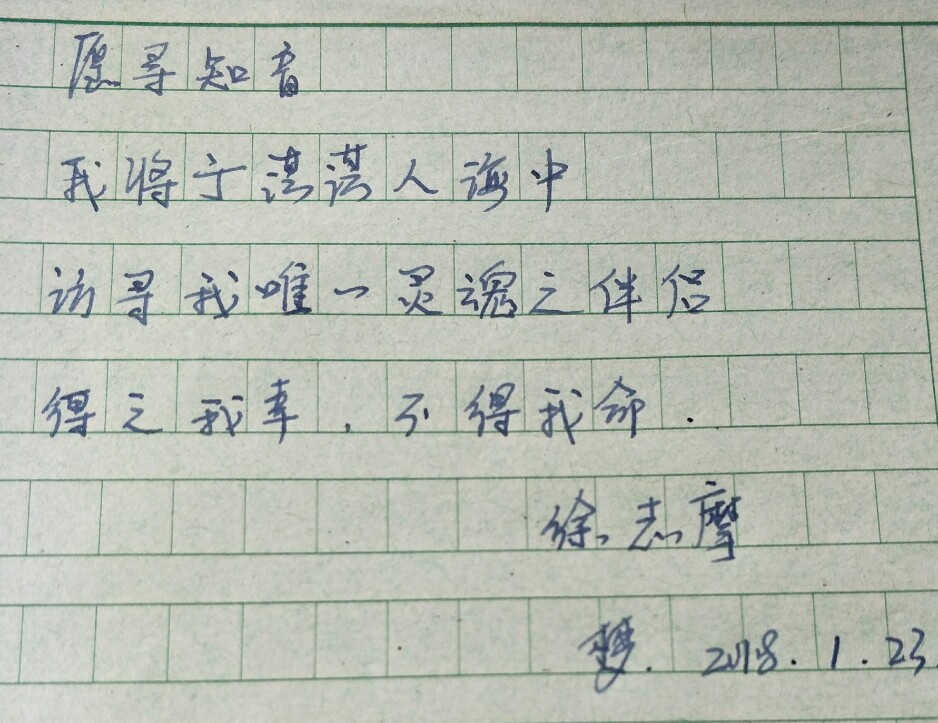 愿寻知音
我将于茫茫人海中
访寻我唯一灵魂之伴侣
得之我幸．不得我命．
徐志摩
梦．2018．1．23．